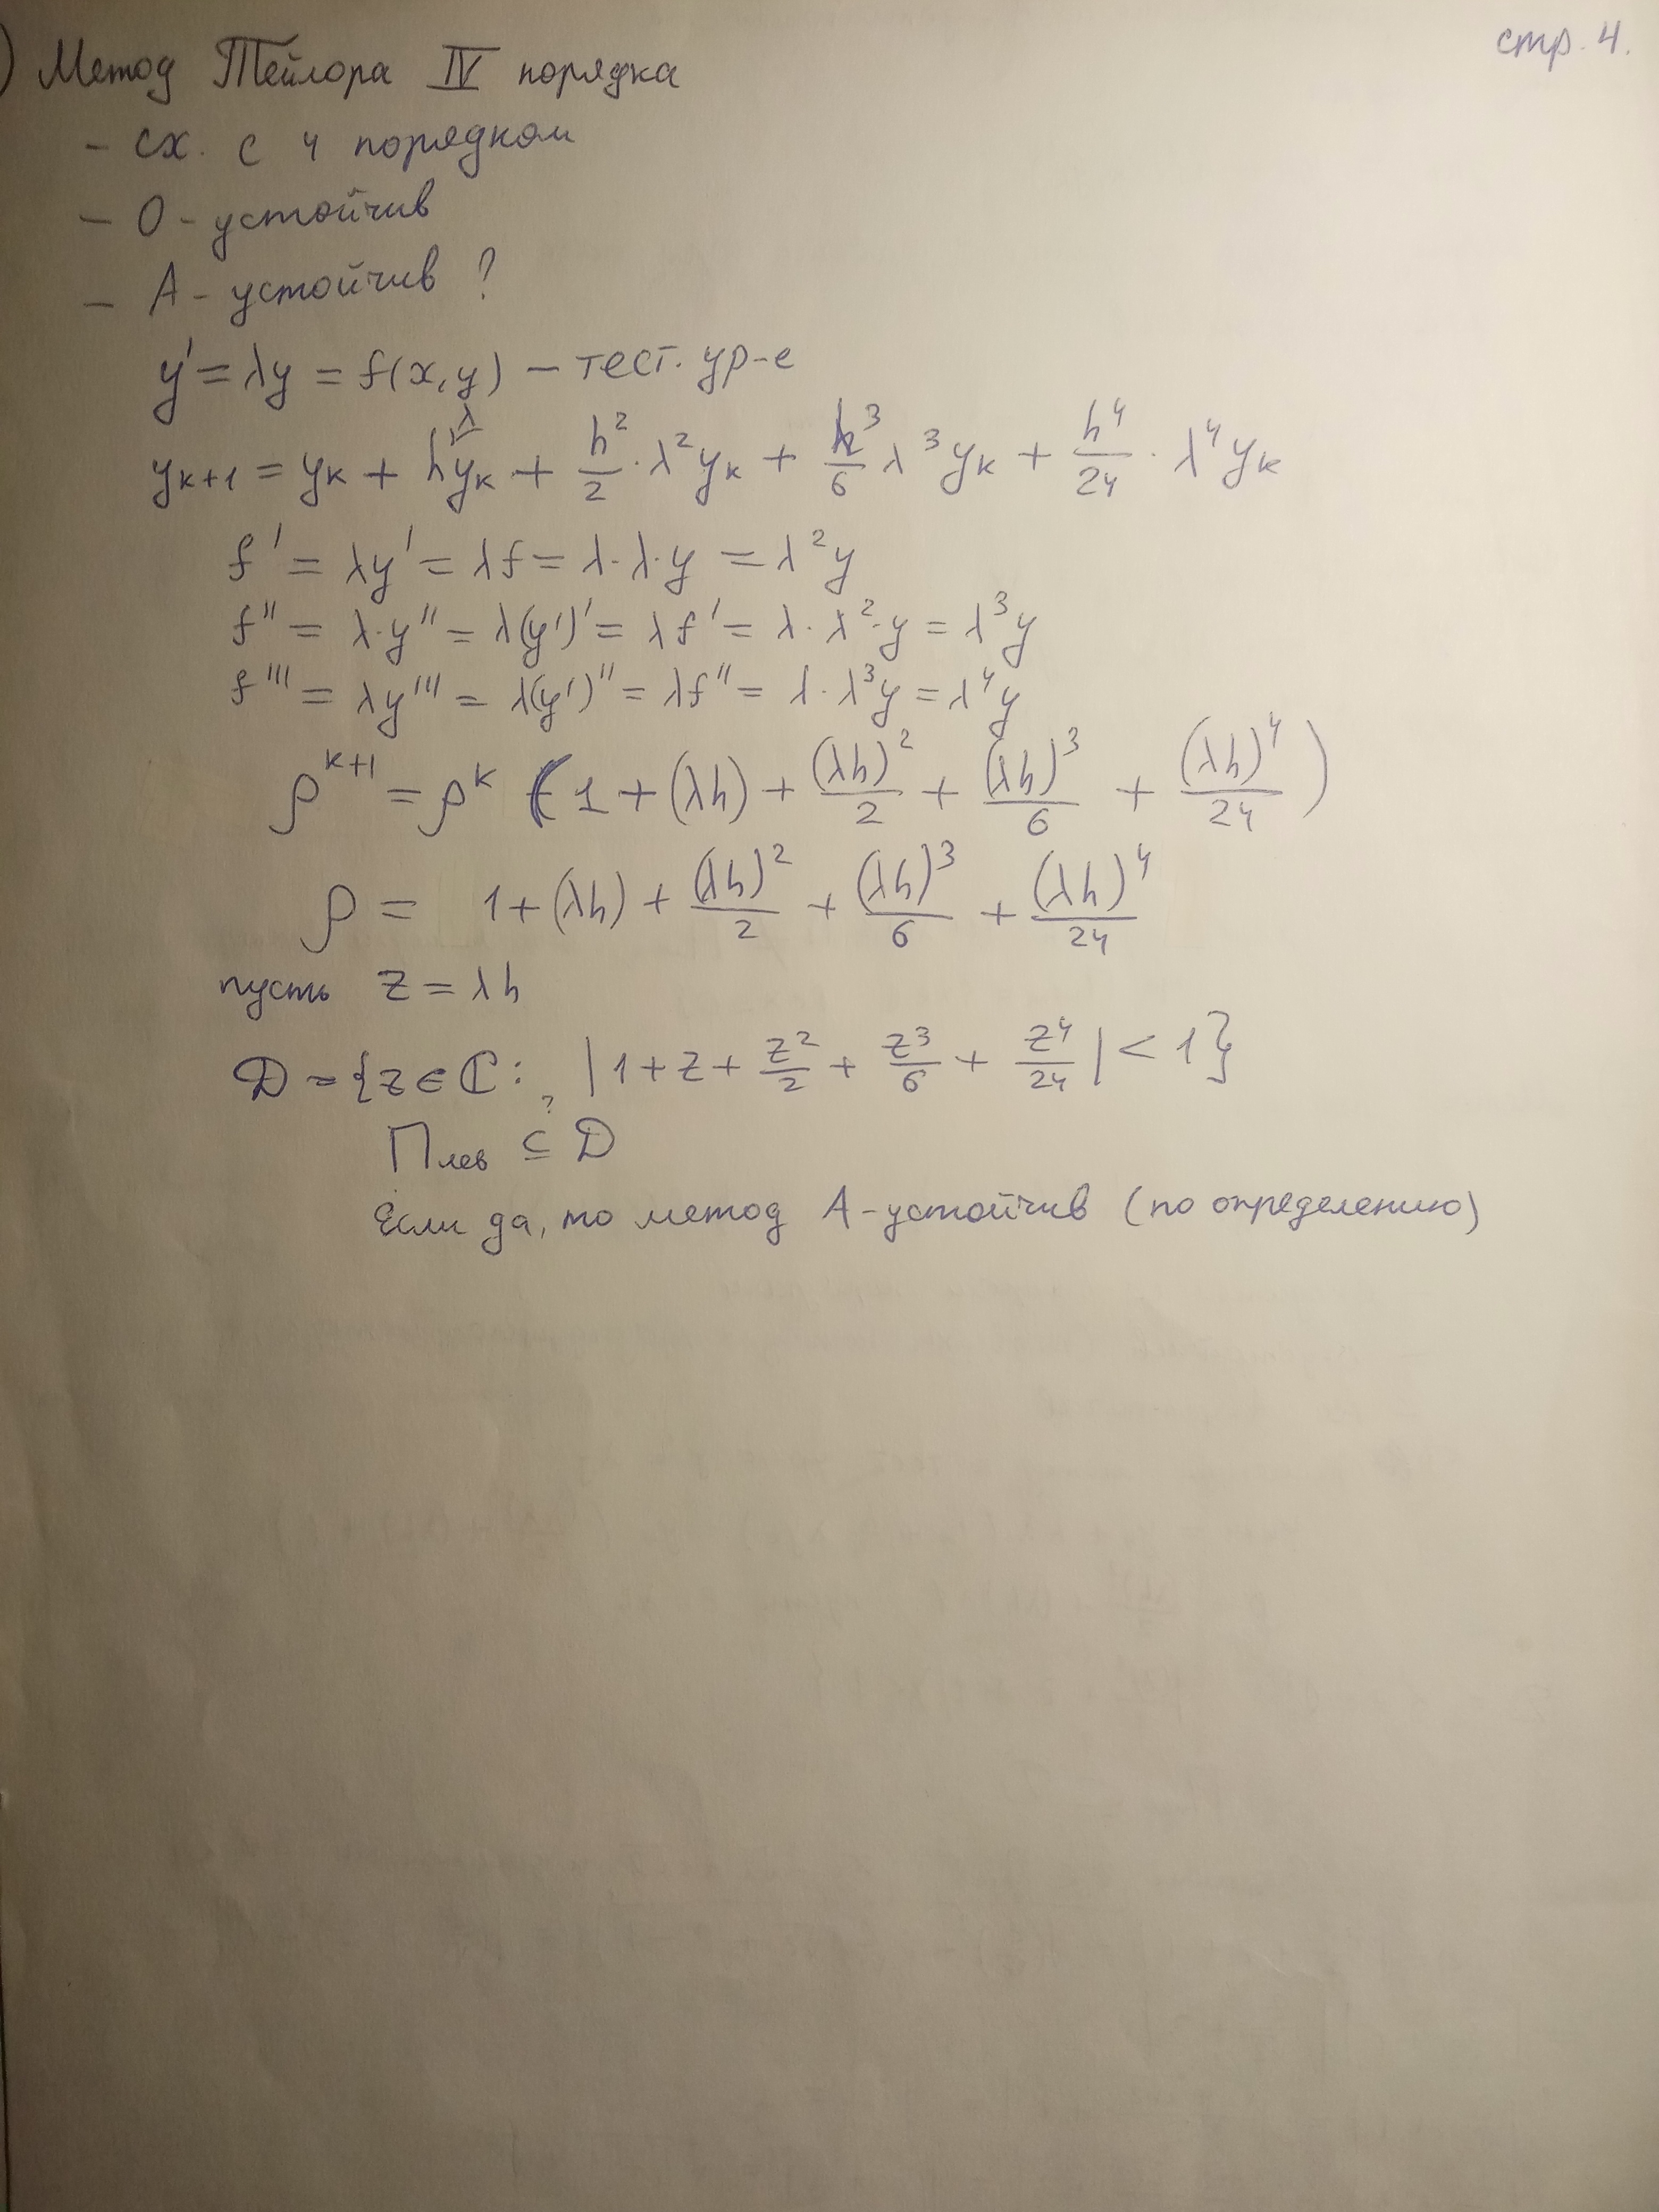 стр. 4.
) Метод Тейлора IV порядка
- сх. с 4 порядком
- 0-устойчив
- А-устойчив ?
y' = λy = f(x,y) - тест. ур-е
yₖ₊₁ = yₖ + hλyₖ + h²/2 · λ²yₖ + h³/6 λ³yₖ + h⁴/24 · λ⁴yₖ
f' = λy' = λf = λ·λ·y = λ²y
f'' = λ·y'' = λ(y')' = λf' = λ·λ²·y = λ³y
f''' = λy''' = λ(y')'' = λf'' = λ·λ³y = λ⁴y
ρᵏ⁺¹ = ρᵏ (1 + (λh) + (λh)²/2 + (λh)³/6 + (λh)⁴/24)
ρ = 1 + (λh) + (λh)²/2 + (λh)³/6 + (λh)⁴/24
пусть z = λh
D = {z ∈ ℂ: |1 + z + z²/2 + z³/6 + z⁴/24| < 1}
Плев ⊆? D
Если да, то метод А-устойчив (по определению)